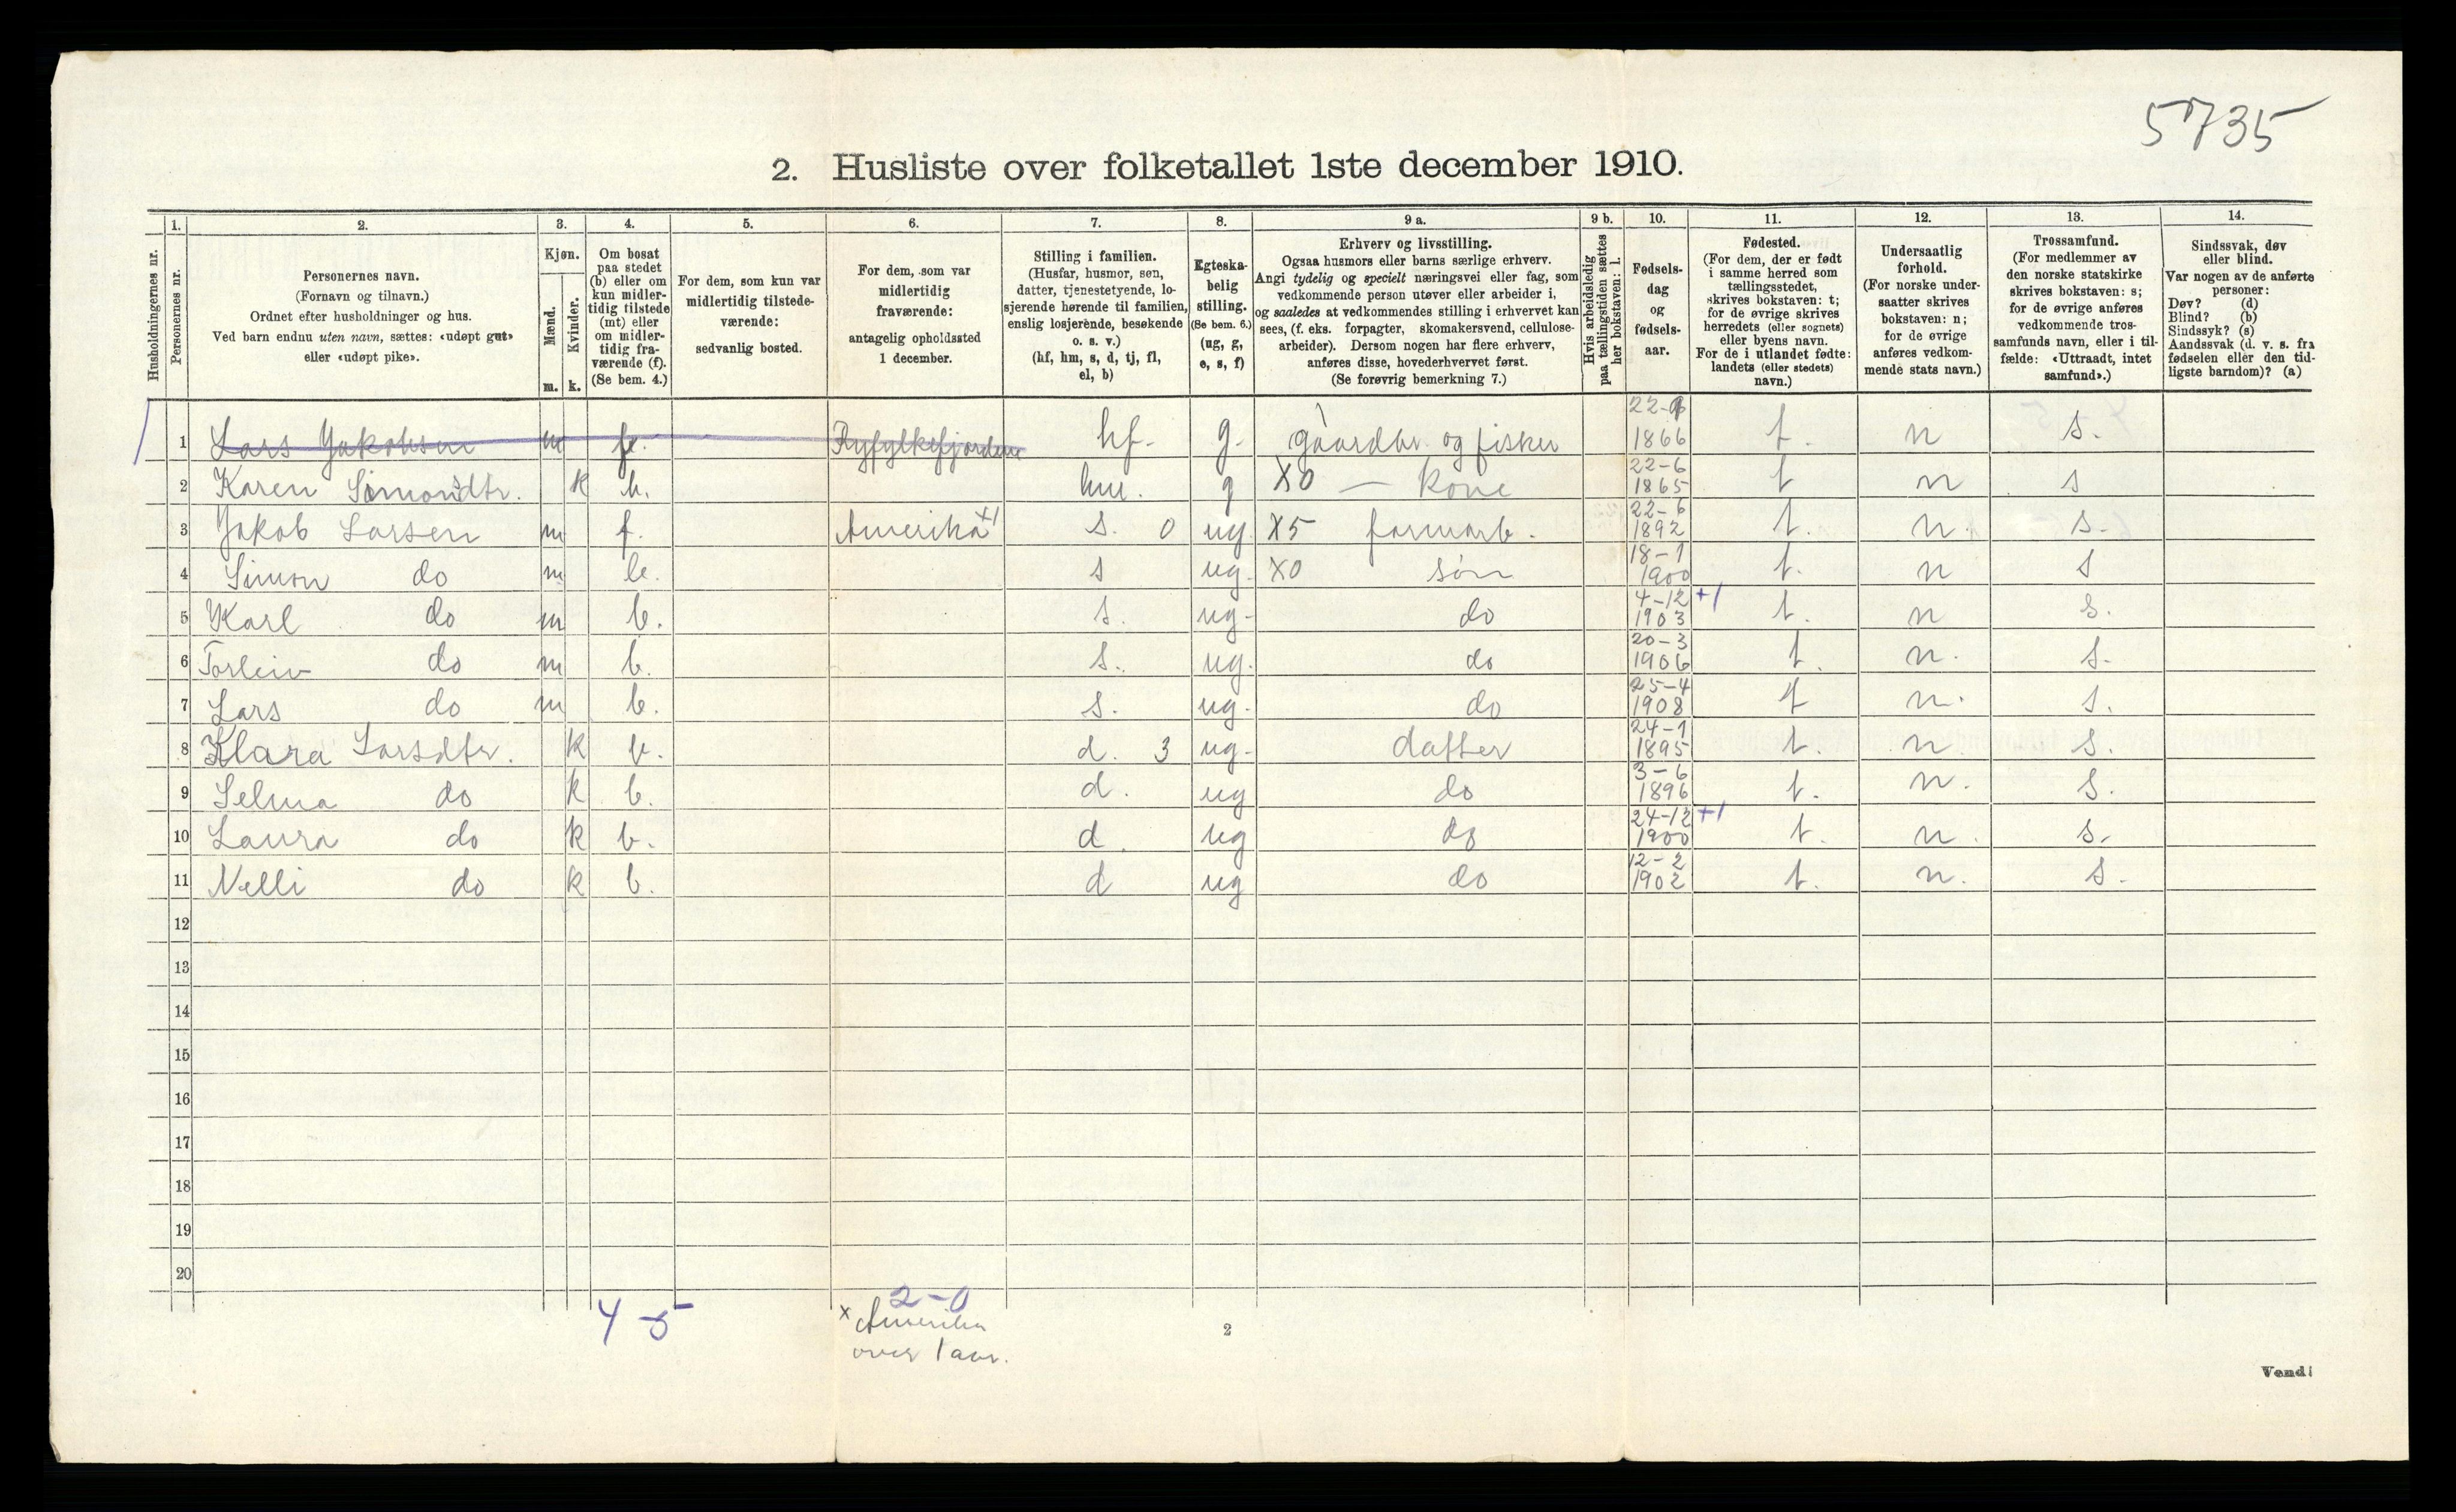 5735
2. Husliste over folketallet 1ste december 1910.
1. 2. 3. 4. 5. 6. 7. 8. 9 a. 9 b. 10. 11. 12. 13. 14.
Husholdningernes nr.
Personernes nr.
Personernes navn.
(Fornavn og tilnavn.)
Ordnet efter husholdninger og hus.
Ved barn endnu uten navn, sættes: «udøpt gut»
eller «udøpt pike».
Kjøn.
Mænd.
Kvinder.
m. k.
Om bosat
paa stedet
(b) eller om
kun midler-
tidig tilstede
(mt) eller
om midler-
tidig fra-
værende (f).
(Se bem. 4.)
For dem, som kun var
midlertidig tilstede-
værende:
sedvanlig bosted.
For dem, som var
midlertidig
fraværende:
antagelig opholdssted
1 december.
Stilling i familien.
(Husfar, husmor, søn,
datter, tjenestetyende, lo-
sjerende hørende til familien,
enslig losjerende, besøkende
o. s. v.)
(hf, hm, s, d, tj, fl,
el, b)
Egteska-
belig
stilling.
(Se bem. 6.)
(ug, g,
e, s, f)
Erhverv og livsstilling.
Ogsaa husmors eller barns særlige erhverv.
Angi tydelig og specielt næringsvei eller fag, som
vedkommende person utøver eller arbeider i,
og saaledes at vedkommendes stilling i erhvervet kan
sees, (f. eks. forpagter, skomakersvend, cellulose-
arbeider). Dersom nogen har flere erhverv,
anføres disse, hovederhvervet først.
(Se forøvrig bemerkning 7.)
Hvis arbeidsledig
paa tællingstiden sættes
her bokstaven: l.
Fødsels-
dag
og
fødsels-
aar.
Fødested.
(For dem, der er født
i samme herred som
tællingsstedet,
skrives bokstaven: t;
for de øvrige skrives
herredets (eller sognets)
eller byens navn.
For de i utlandet fødte:
landets (eller stedets)
navn.)
Undersaatlig
forhold.
(For norske under-
saatter skrives
bokstaven: n;
for de øvrige
anføres vedkom-
mende stats navn.)
Trossamfund.
(For medlemmer av
den norske statskirke
skrives bokstaven: s;
for de øvrige anføres
vedkommende tros-
samfunds navn, eller i til-
fælde: «Uttraadt, intet
samfund».)
Sindssvak, døv
eller blind.
Var nogen av de anførte
personer:
Døv? (d)
Blind? (b)
Sindssyk? (s)
Aandssvak (d. v. s. fra
fødselen eller den tid-
ligste barndom)? (a)
1 Lars Jakobsen m Ryfylkefjordene hf. g. gaardbr. og fisker 1866 t. n s.
2 Karen Simondtr. k b. hm. g X0 — kone 22-6 1865 t n s
3 Jakob Larsen m f. Amerika x1 s. 0 ug. X5 farmarb. 22-6 1892 t. n. s.
4 Simon do m b. s ug. X0 søn 18-1 1900 t. n s
5 Karl do m b. s. ug. do 4-12 1903 +1 t. n s.
6 Torleiv do m b. s. ug. do 20-3 1906 t. n. s.
7 Lars do m b. s. ug. do 25-4 1908 t n. s.
8 Klara Larsdtr. k b. d. 3 ug. datter 24-1 1895 t. n. s.
9 Selma do k b. d. ug do 3-6 1896 t. n. s.
10 Laura do k b. d. ug do 24-12 1900 +1 t. n. s.
11 Nelli do k b. d ug do 12-2 1902 t. n. s.
12
13
14
15
16
17
18
19
20
4-5
2-0
x Amerika
over 1 aar.
2
Vend!